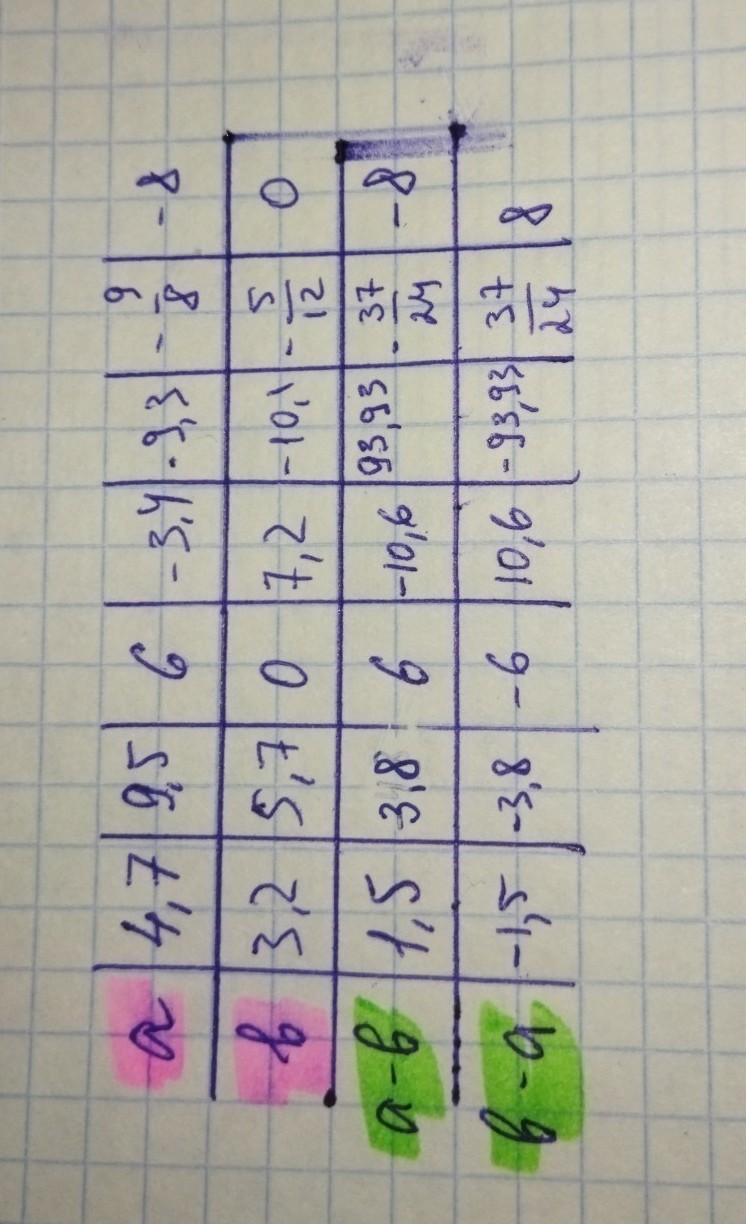 a 4,7 9,5 6 -3,4 -9,3 -9/8 -8
b 3,2 5,7 0 7,2 -10,1 -5/12 0
a-b 1,5 3,8 6 -10,6 93,93 -37/24 -8
b-a -1,5 -3,8 -6 10,6 -93,93 37/24 8